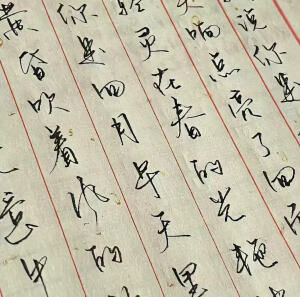 说你是
响点亮了四面
轻灵在春的光艳
你是四月早天里
黄昏吹着风的
意中